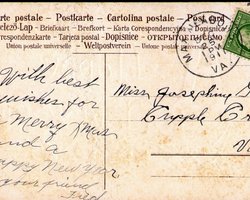 Postkarte - Postkarte - Cartolina postale - Post
Levelező-Lap - Brefkort - Brevkort - Karta Correspondencyjna
Korespondenzkarte - Tarjeta postal - Dopisnice - ОТКРЫТОЕ ПИСЬМО
Union postale universelle - Weltpostverein - Unione postale universale
With best
wishes for
a Merry Xmas
and a
Happy New Year
your friend
Fred
VA.
Miss Josephine
Cripple Cr